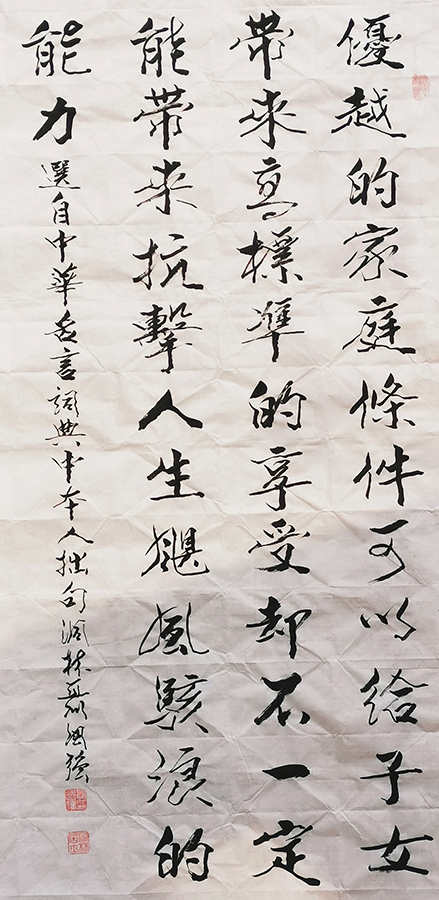 優越的家庭條件可以給子女
帶來高標準的享受却不一定
能帶來抗擊人生飓風駭浪的
能力
選自中華名言詞典中本人拙句湖林聶国强